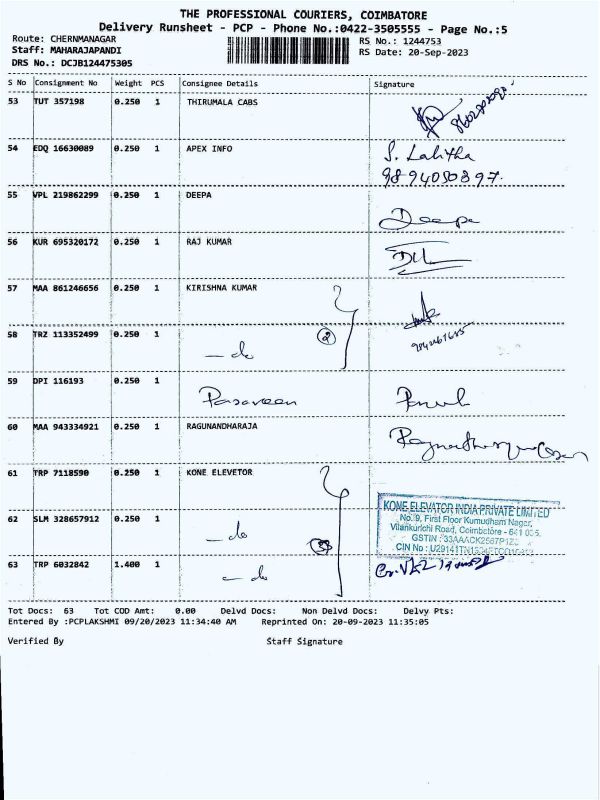 THE PROFESSIONAL COURIERS, COIMBATORE
Delivery Runsheet - PCP - Phone No.:0422-3505555 - Page No.:5
Route: CHERNMANAGAR
RS No.: 1244753
Staff: MAHARAJAPANDI
RS Date: 20-Sep-2023
DRS No.: DCJB124475305
S No Consignment No Weight PCS Consignee Details Signature
53 TUT 357198 0.250 1 THIRUMALA CABS
54 EDQ 16630089 0.250 1 APEX INFO S. Lalitha
9894050897.
55 VPL 219862299 0.250 1 DEEPA Deepa
56 KUR 695320172 0.250 1 RAJ KUMAR
57 MAA 861246656 0.250 1 KIRISHNA KUMAR
58 TRZ 113352499 0.250 1 — do 2
59 DPI 116193 0.250 1 Pasaveen
60 MAA 943334921 0.250 1 RAGUNANDHARAJA
61 TRP 7118590 0.250 1 KONE ELEVETOR
KONE ELEVATOR INDIA PRIVATE LIMITED
No. 9, First Floor Kumudham Nagar,
Vilankurichi Road, Coimbatore - 641 035.
GSTIN :
CIN No :
62 SLM 328657912 0.250 1 — do
63 TRP 6032842 1.400 1 — do
Tot Docs: 63 Tot COD Amt: 0.00 Delvd Docs: Non Delvd Docs: Delvy Pts:
Entered By :PCPLAKSHMI 09/20/2023 11:34:40 AM Reprinted On: 20-09-2023 11:35:05
Verified By Staff Signature